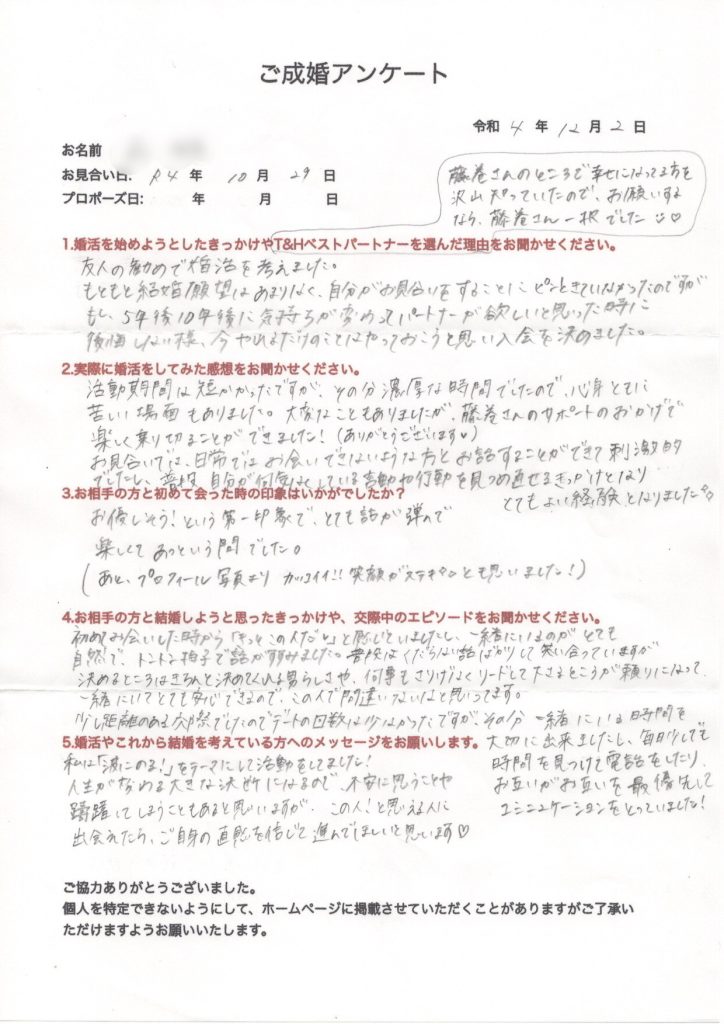 ご成婚アンケート
令和 4 年 12 月 2 日
お名前
お見合い日: R4 年 10 月 29 日
プロポーズ日: 年 月 日
藤巻さんのところで幸せになってる方を
沢山知っていたので、お願いする
なら、藤巻さん一択でした♡
1.婚活を始めようとしたきっかけやT&Hベストパートナーを選んだ理由をお聞かせください。
友人の勧めで婚活を考えました。
もともと結婚願望はあまりなく、自分がお見合いをすることにピンときていなかったのですが
もし、5年後10年後に気持ちが変わってパートナーが欲しいと思った時に
後悔しない様、今やれるだけのことはやっておこうと思い入会を決めました。
2.実際に婚活をしてみた感想をお聞かせください。
活動期間は短かかったですが、その分濃厚な時間でしたので、心身ともに
苦しい場面もありました。大変なこともありましたが、藤巻さんのサポートのおかげで
楽しく乗り切ることができました!(ありがとうございます♡)
お見合いでは、日常ではお会いできないような方とお話することができて刺激的
でしたし、普段、自分が何気なくしている言動や行動を見つめ直せるきっかけとなり
とてもよい経験となりました
3.お相手の方と初めて会った時の印象はいかがでしたか?
お優しそう!という第一印象で、とても話が弾んで
楽しくてあっという間でした。
(あと、プロフィール写真よりカッコイイ!!笑顔がステキとも思いました!)
4.お相手の方と結婚しようと思ったきっかけや、交際中のエピソードをお聞かせください。
初めお会いした時から「きっとこの人だと」と感じていましたし、一緒にいるのがとても
自然で、トントン拍子で話が進みました。普段はくだらない話ばかりして笑い合っていますが
決めるところはきちんと決めてくれる男らしさや、何事もさりげなくリードして下さるところが頼りになって
一緒にいてとても安心できるので、この人で間違いないなと思ってます。
少し距離のある交際でしたのでデートの回数は少なかったですが、その分一緒にいる時間を
大切に出来ましたし、毎日少しでも
時間を見つけて電話をしたり、
お互いがお互いを最優先して
コミュニケーションをとっていました!
5.婚活やこれから結婚を考えている方へのメッセージをお願いします。
私は「波にのる!」をテーマにして活動をしてました!
人生が変わる大きな決断になるので、不安に思うことや
躊躇してしまうこともあると思いますが、この人!と思える人に
出会えたら、ご自身の直感を信じて進んでほしいと思います♡
ご協力ありがとうございました。
個人を特定できないようにして、ホームページに掲載させていただくことがありますがご了承い
ただけますようお願いいたします。